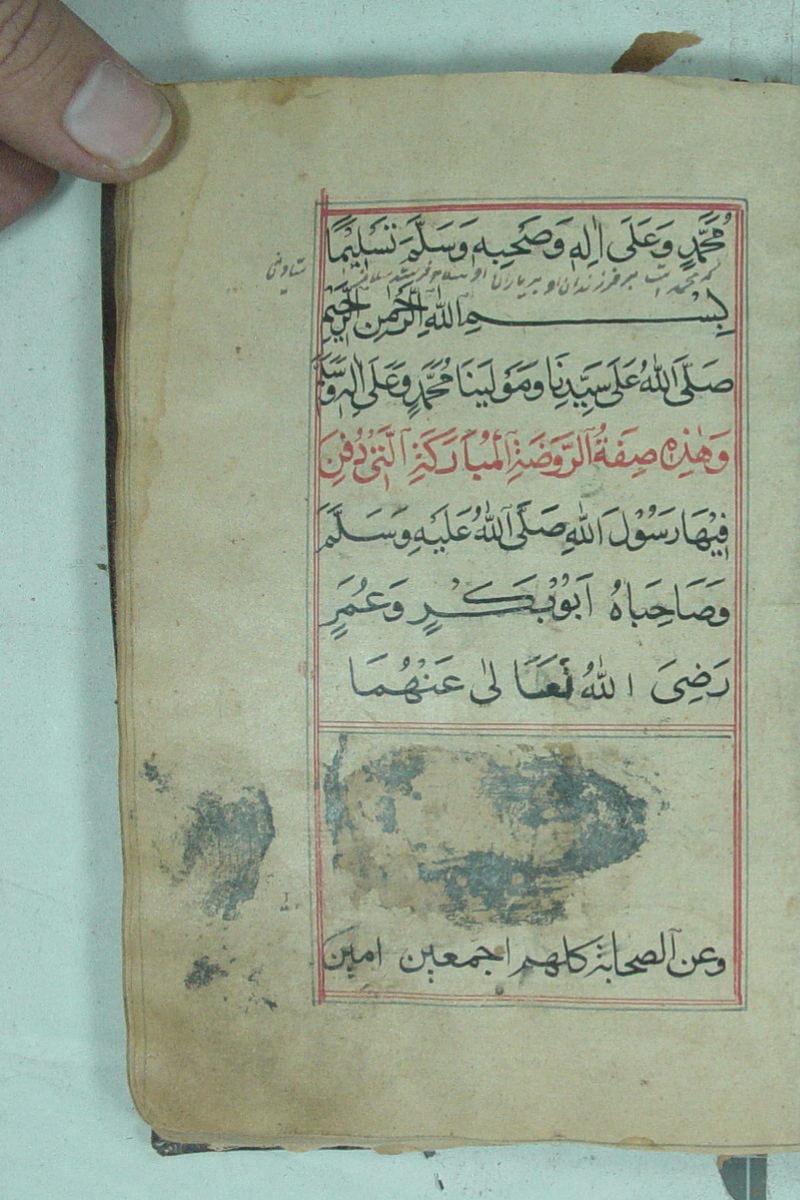 مُحَمَّدٍ وَعَلَى اٰلِهٖ وَصَحْبِهٖ وَسَلَّمَ تَسْلِيْمًا
كه محمد است بر فرزندان او و بر ياران او سلام
بِسْمِ اللهِ الرَّحْمٰنِ الرَّحِيْمِ
صَلَّى اللهُ عَلَى سَيِّدِنَا وَمَوْلَيْنَا مُحَمَّدٍ وَعَلَى اٰلِهٖ وَسَلَّمَ
وَهٰذِهٖ صِفَةُ الرَّوْضَةِ الْمُبَارَكَةِ الَّتِىْ دُفِنَ
فِيْهَا رَسُوْلَ اللهِ صَلَّى اللهُ عَلَيْهِ وَسَلَّمَ
وَصَاحِبَاهُ اَبُوْبَكْرٍ وَعُمَرٍ
رَضِىَ اللهُ تَعَالٰى عَنْهُمَا
وعن الصحابة كلهم اجمعين امين